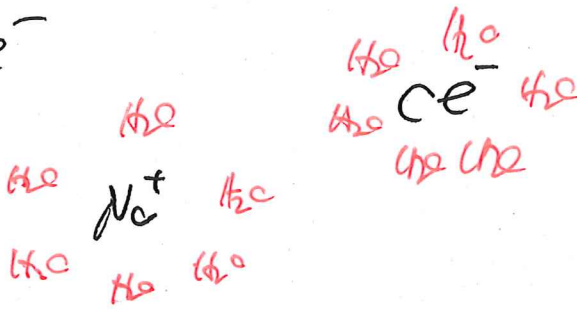 H₂O
H₂O
Cl⁻
H₂O
H₂O
H₂O
H₂O H₂O
H₂O
Na⁺
H₂O
H₂O
H₂O
H₂O